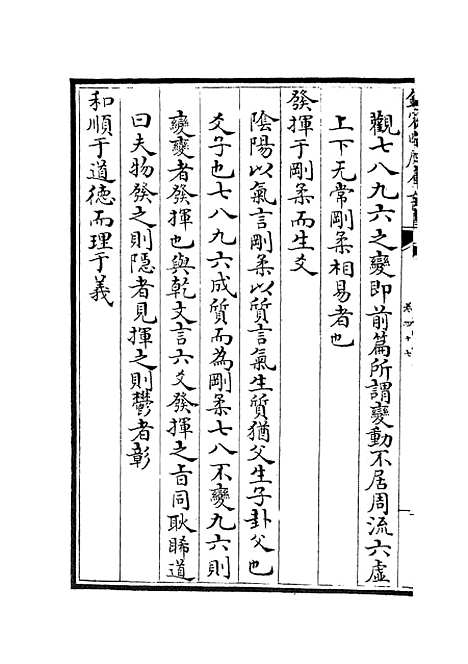 觀七八九六之變即前篇所謂變動不居周流六虛
上下无常剛柔相易者也
發揮于剛柔而生爻
陰陽以氣言剛柔以質言氣生質猶父生子卦父也
爻子也七八九六成質而為剛柔七八不變九六則
變變者發揮也與乾文言六爻發揮之㫖同耿睎道
曰夫物發之則隠者見揮之則鬱者彰
和順于道徳而理于義